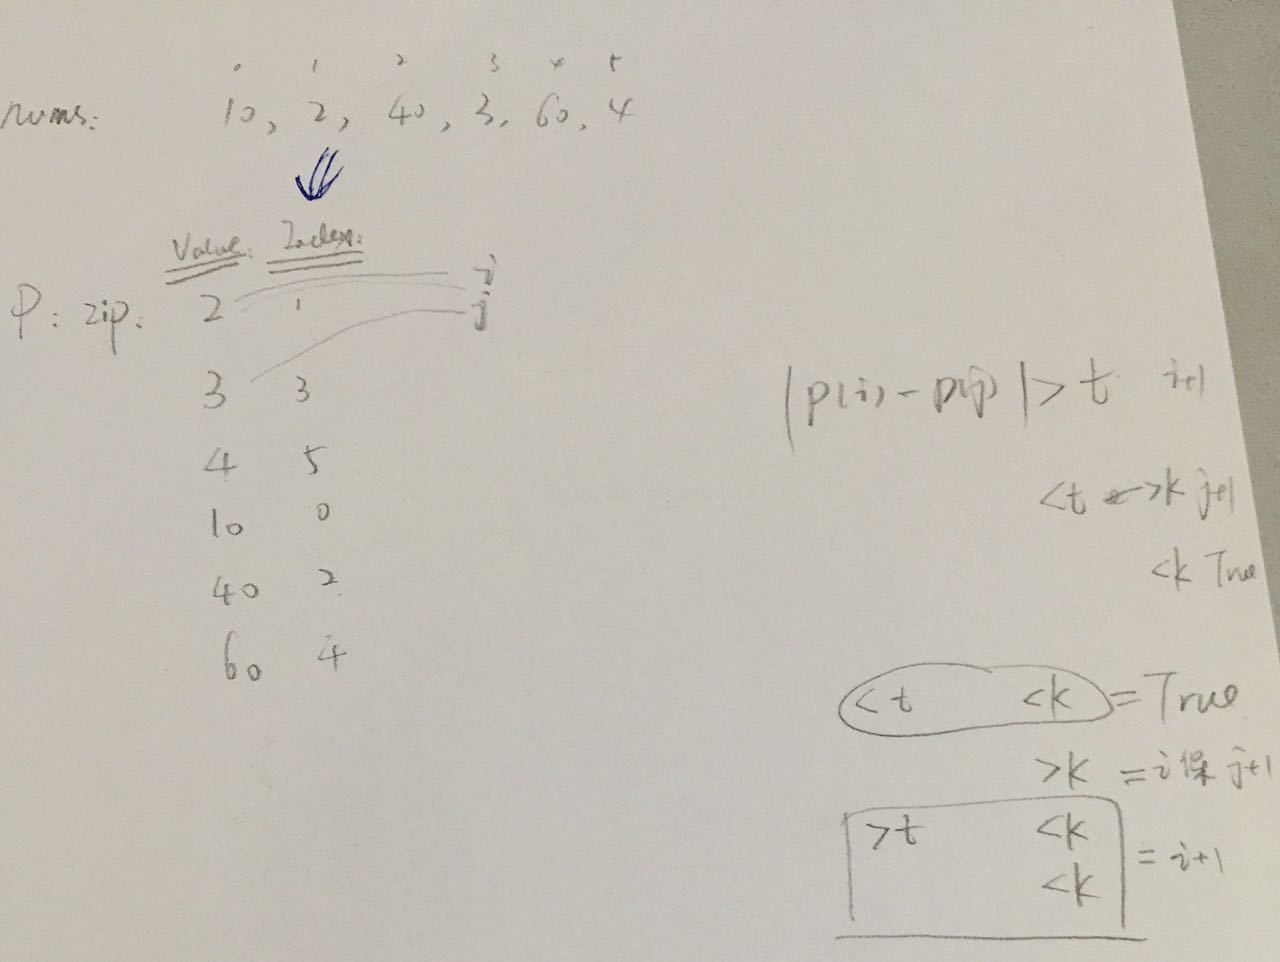 0 1 2 3 4 5
nums: 10, 2, 40, 3, 60, 4
Value: Index:
i
P: zip: 2 1
j
3 3
|p(i) - p(j)| > t i+1
4 5
<t >k j+1
10 0
<k True
40 2
60 4
<t <k = True
>k = i保 j+1
>t <k
= i+1
<k